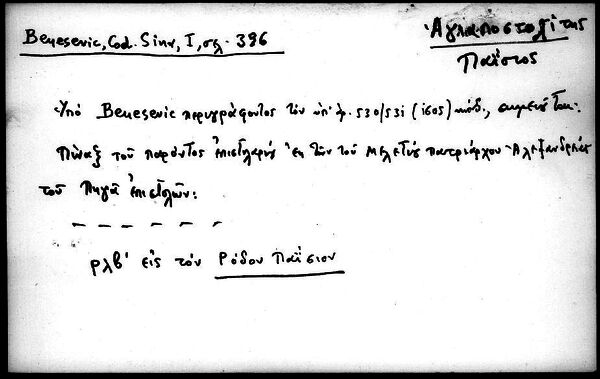 Benesevic, Cod. Sinn, I, σελ. 396
Ἁγιαποστολίτης
Παΐσιος
Ὑπὸ Benesevic περιγράφοντος τὸν ὑπ' ἀρ. 530/531 (1605) κώδ., σημειοῦται:
Πίναξ τοῦ παρόντος ἐπισταρίου ἐκ τῶν τοῦ Μελετίου πατριάρχου Ἀλεξανδρείας
τοῦ Πηγᾶ ἐπιστολῶν:
– – – – – –
ρλβ' εἰς τὸν Ῥόδου Παΐσιον